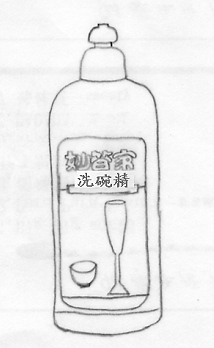 妙管家
洗碗精